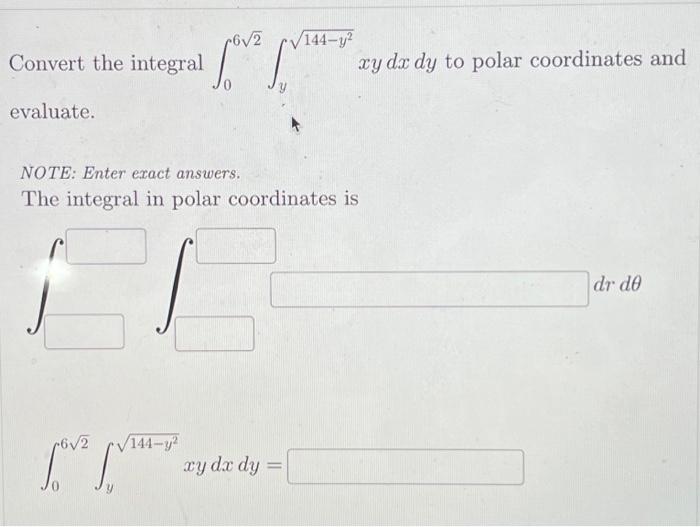 Convert the integral ∫₀^{6√2} ∫_y^{√(144−y²)} xy dx dy to polar coordinates and
evaluate.
NOTE: Enter exact answers.
The integral in polar coordinates is
∫ ∫ dr dθ
∫₀^{6√2} ∫_y^{√(144−y²)} xy dx dy =